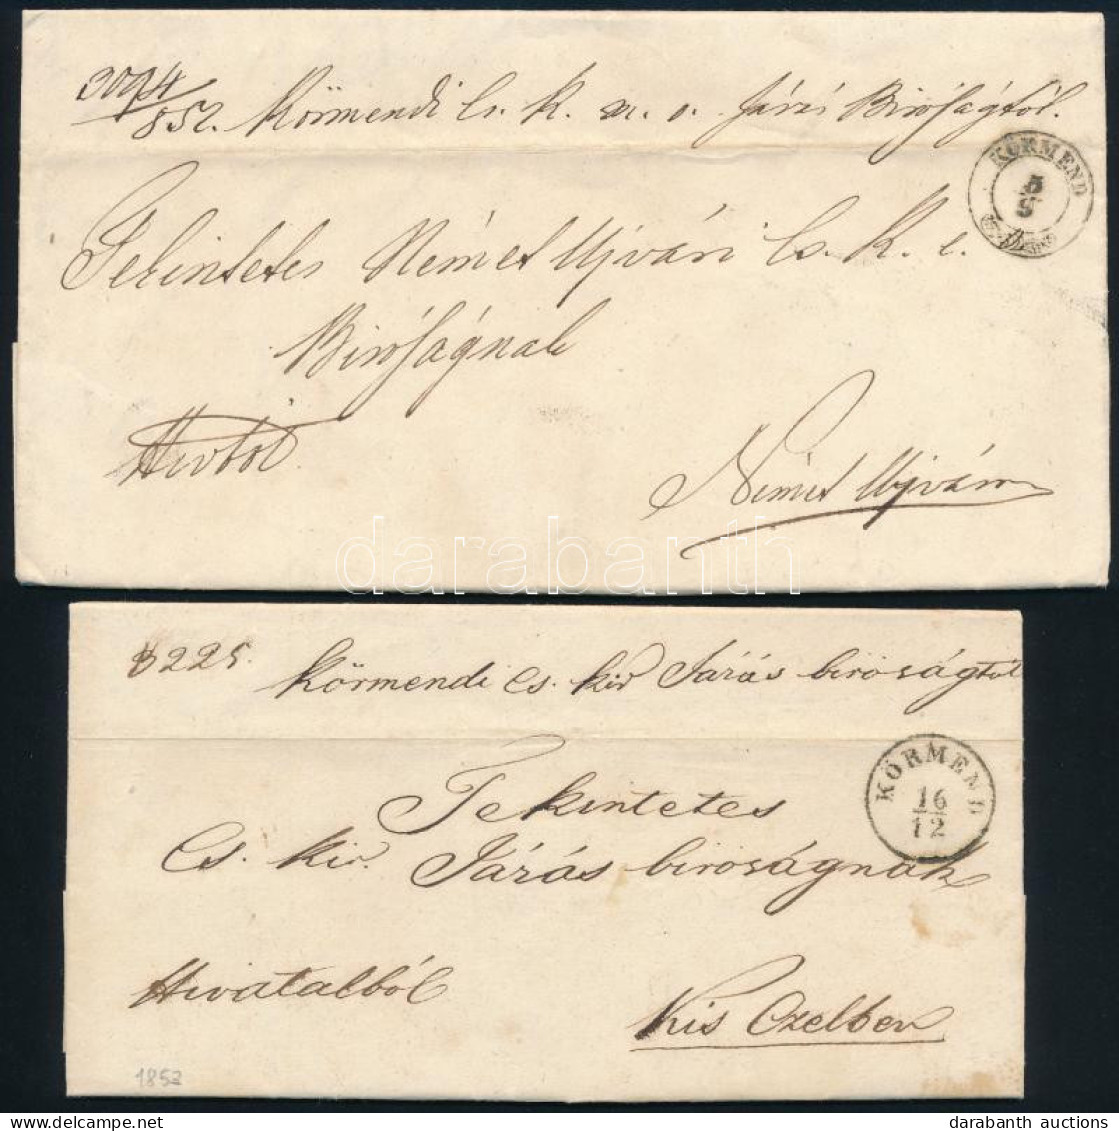 3094/852. Körmendi Cs. K. m. o. Járási Biróságtól.
KÖRMEND
5
9
Tekintetes Német Ujvári Cs. K. e.
Biróságnak
Hivból
Német Ujváron
darabanth
3225.
Körmendi cs. kir Járás biroságtól
KÖRMEND
16
12
Tekintetes
Cs. kir. Járás biroságnak
Hivatalból
Kis Czelben
1852
darabanth auctions